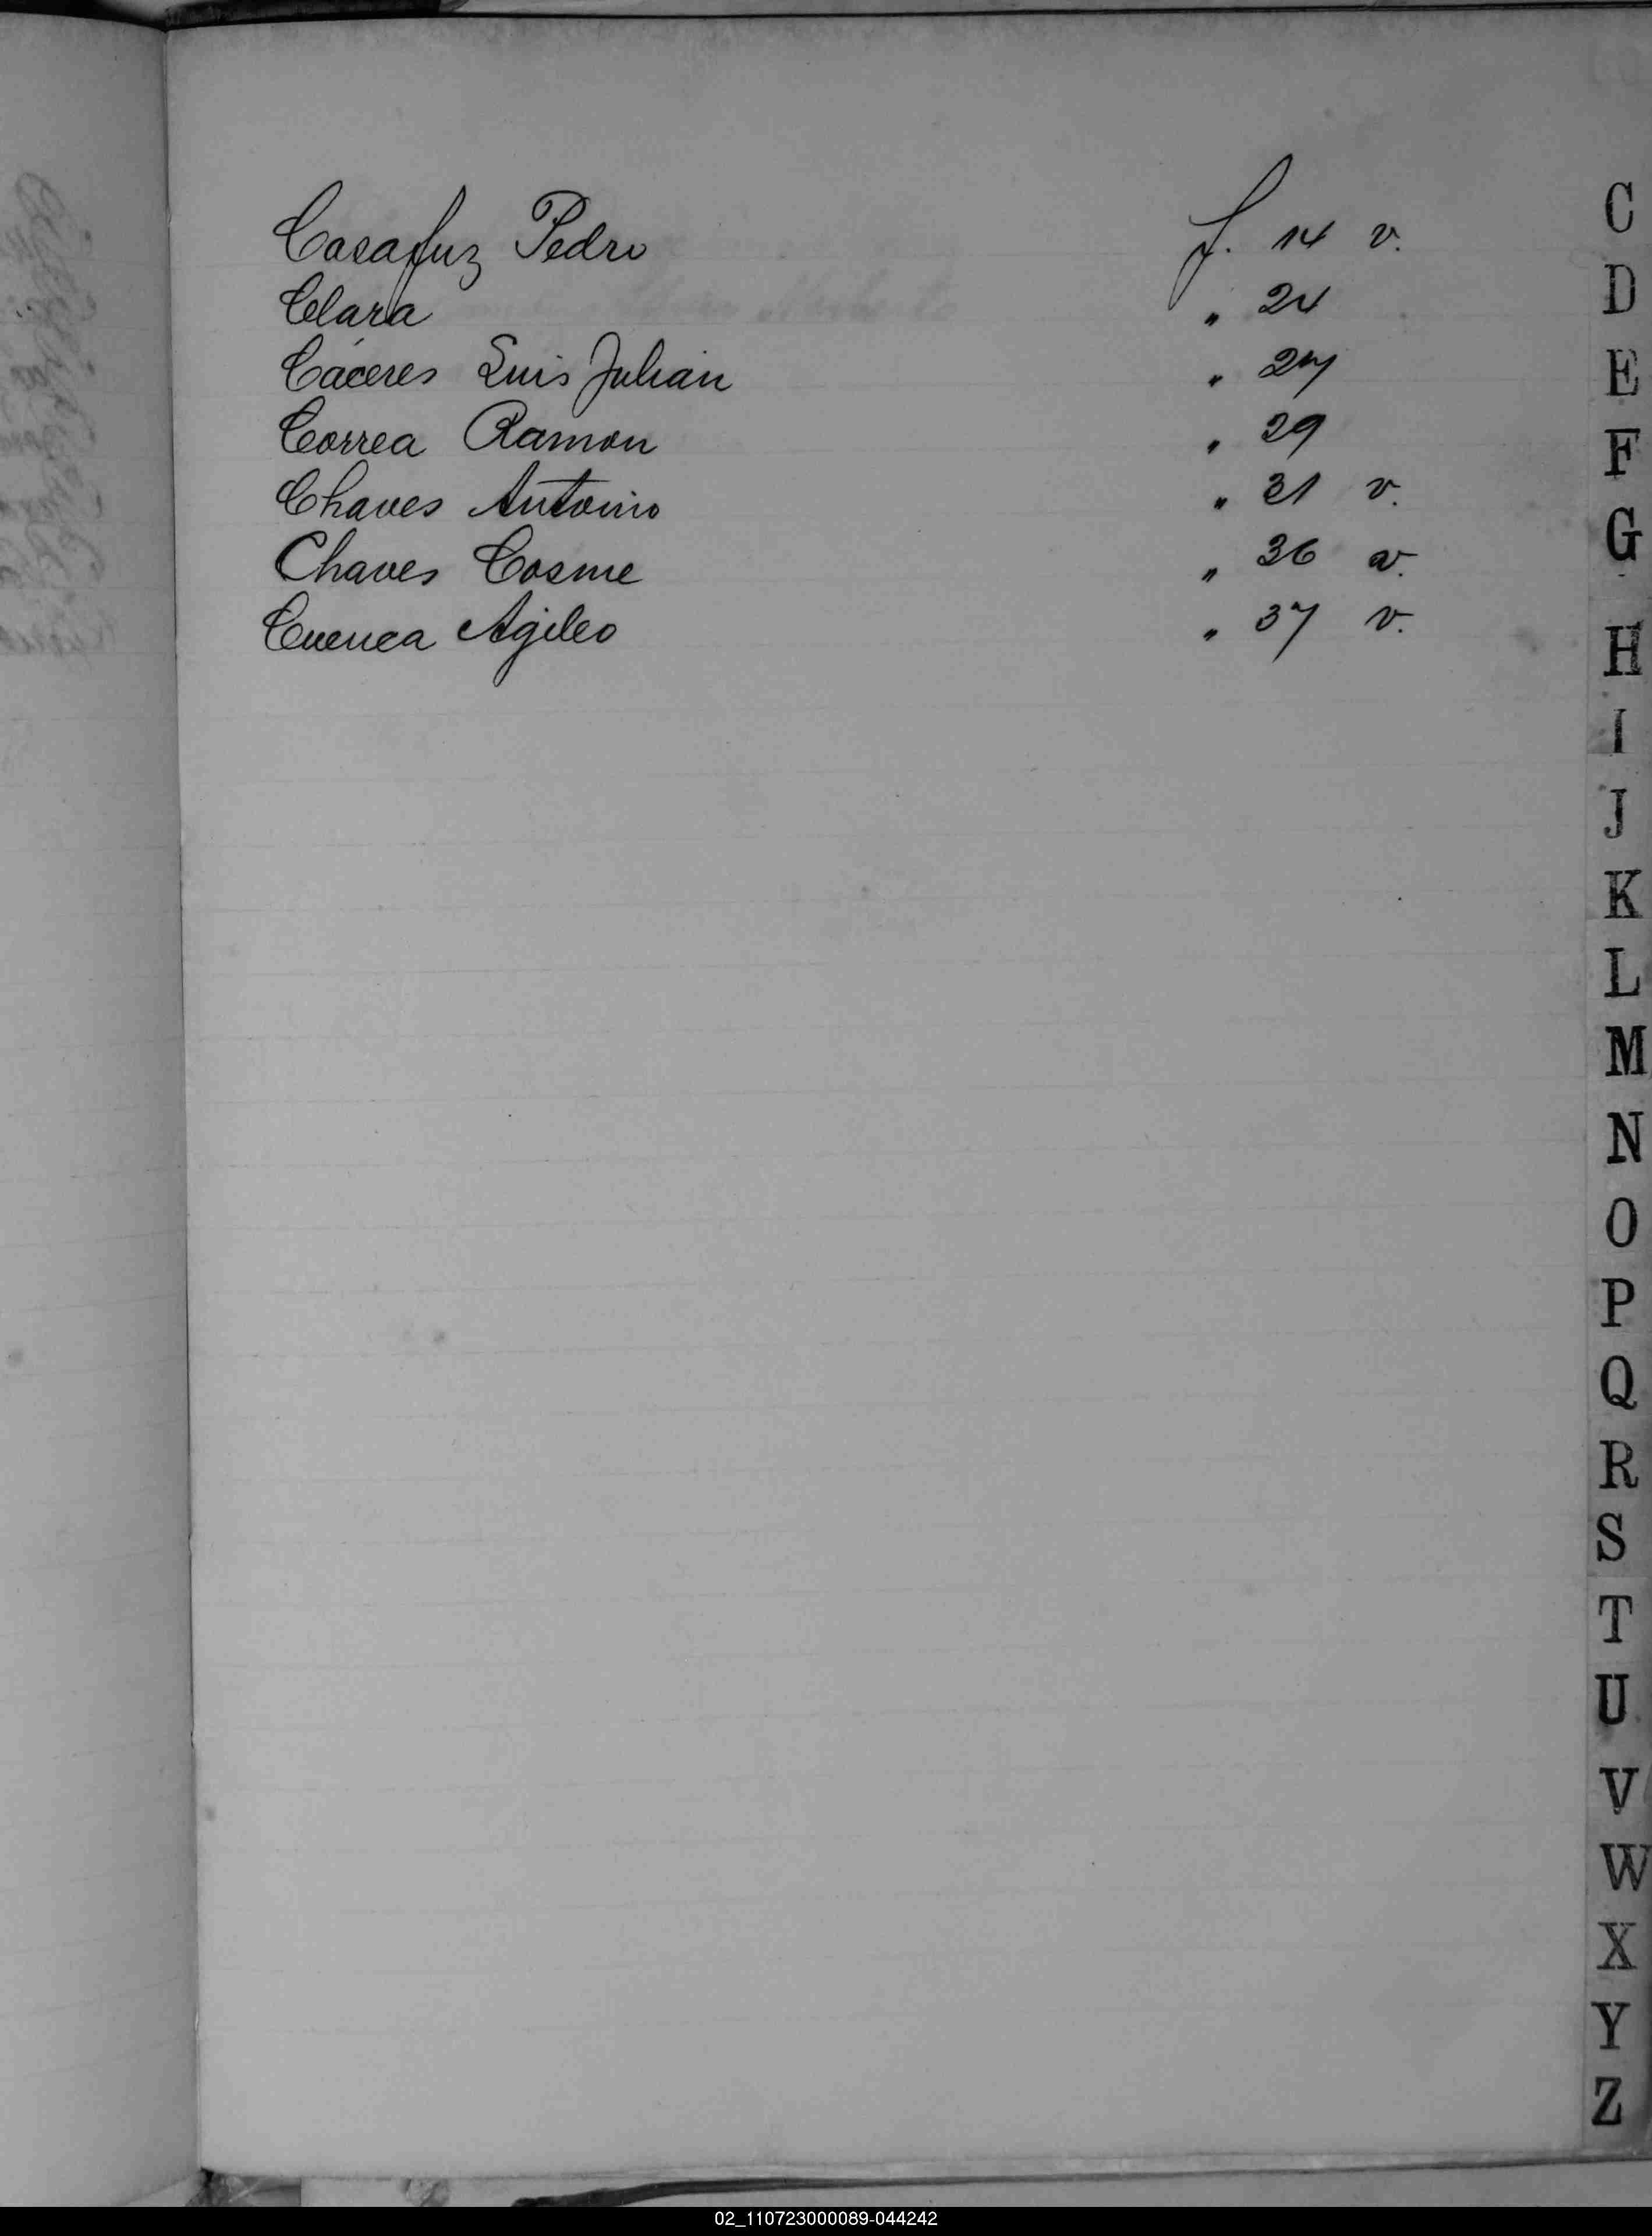 Casafuz Pedro f. 14 v.
Clara " 24
Cáceres Luis Julian " 27
Correa Ramon " 29
Chaves Antonio " 31 v.
Chaves Cosme " 36 v.
Cuenca Agileo " 37 v.
C
D
E
F
G
H
I
J
K
L
M
N
O
P
Q
R
S
T
U
V
W
X
Y
Z
02_110723000089-044242